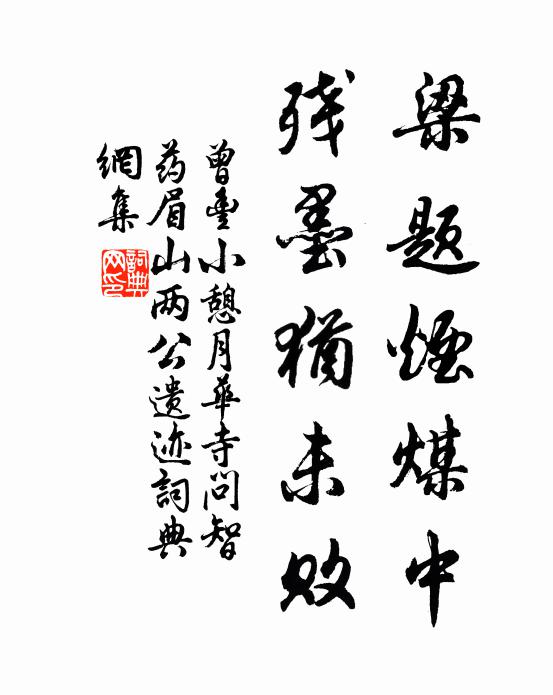 梁题煙煤中
残墨猶未败
曾豊小憩月華寺問智
药眉山两公遗迹詞典
網集
詞典网印